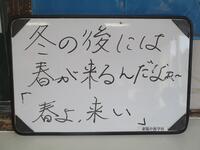 冬の後には
春が来るんだなぁ~
「春よ、来い」